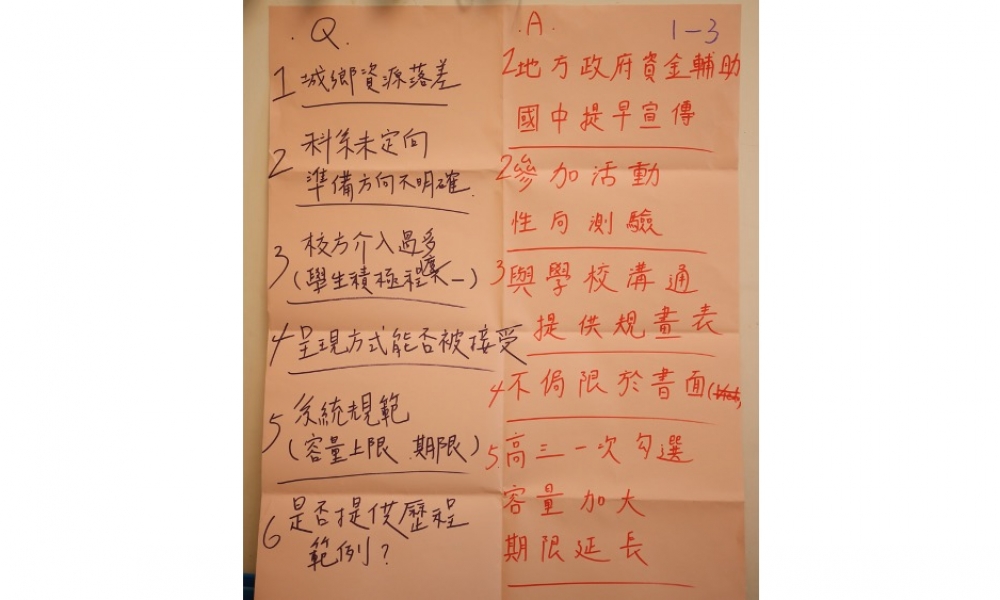 .Q.
1 城鄉資源落差
2 科系未定向
準備方向不明確.
3 校方介入過多
(學生積極程度不一)
4 呈現方式能否被接受
5 系統規範
(容量上限 期限)
6 是否提供歷程
範例?
.A.
1-3
2地方政府資金輔助
國中提早宣傳
2參加活動
性向測驗
3與學校溝通
提供規畫表
4不侷限於書面
5.高三一次勾選
容量加大
期限延長